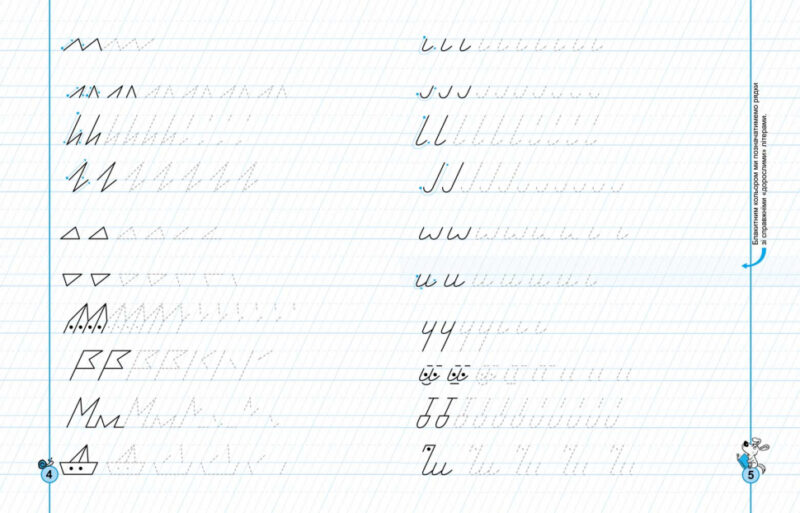 и и
4
Блакитним кольором ми позначатимемо рядки
зі справжніми «дорослими» літерами.
5